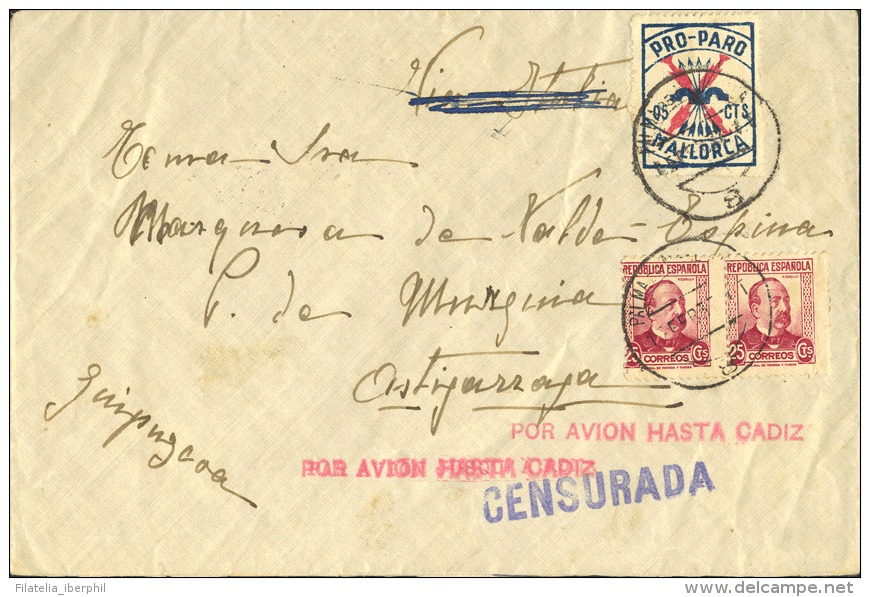 PRO-PARO
CTS
MALLORCA
Via Italia
Marquesa de Valde-Espina
P. de Murguia
Astigarraga
Guipuzcoa
REPÚBLICA ESPAÑOLA
REPÚBLICA ESPAÑOLA
CTS
25 CTS
CORREOS
CORREOS
PALMA
PALMA
POR AVION HASTA CADIZ
POR AVION HASTA CADIZ
CENSURADA
Filatelia_iberphil
delcampe.net